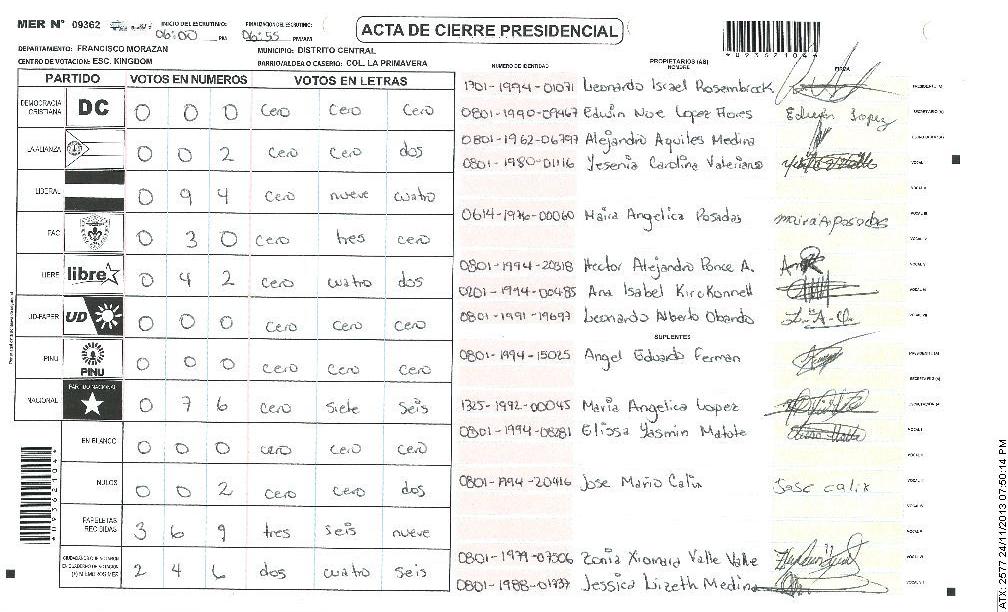 MER Nº 09362
INICIO DEL ESCRUTINIO: 06:00 PM
FINALIZACION DEL ESCRUTINIO: 06:55 PM/AM
ACTA DE CIERRE PRESIDENCIAL
*09362104*
DEPARTAMENTO: FRANCISCO MORAZAN
MUNICIPIO: DISTRITO CENTRAL
CENTRO DE VOTACION: ESC. KINGDOM
BARRIO/ALDEA O CASERIO: COL. LA PRIMAVERA
PARTIDO VOTOS EN NUMEROS VOTOS EN LETRAS
DEMOCRACIA CRISTIANA DC 0 0 0 cero cero cero
LA ALIANZA 0 0 2 cero cero dos
LIBERAL 0 9 4 cero nueve cuatro
PAC 0 3 0 cero tres cero
LIBRE libre 0 4 2 cero cuatro dos
UD-FAPER UD 0 0 0 cero cero cero
PINU PINU 0 0 0 cero cero cero
NACIONAL PARTIDO NACIONAL 0 7 6 cero siete seis
EN BLANCO 0 0 0 cero cero cero
NULOS 0 0 2 cero cero dos
PAPELETAS RECIBIDAS 3 6 9 tres seis nueve
CIUDADANOS QUE VOTARON EN CUADERNO DE VOTACION (+) MIEMBROS MER 2 4 6 dos cuatro seis
NUMERO DE IDENTIDAD
PROPIETARIOS (AS)
NOMBRE
FIRMA
1701-1994-01071 Leonardo Israel Rosembrock
0801-1990-09467 Edwin Noe Lopez Flores Edwin Lopez
0801-1962-06797 Alejandro Aquiles Medina
0801-1980-01116 Yesenia Carolina Valeriano
0614-1976-00060 Maira Angelica Posadas maira A posadas
0801-1994-20818 Hector Alejandro Ponce A.
0201-1994-00485 Ana Isabel Kirckonnell
0801-1991-19697 Leonardo Alberto Obando
SUPLENTES
0801-1994-15025 Angel Eduardo Ferman
1325-1992-00045 Maria Angelica Lopez
0801-1994-08281 Elissa Yasmin Matote
0801-1994-20416 Jose Mario Calix Jose calix
0801-1979-07506 Zonia Xiomara Valle Valle
0801-1988-01737 Jessica Lizeth Medina
*09362104*
ATX- 2577 24/11/2013 07:50:14 PM